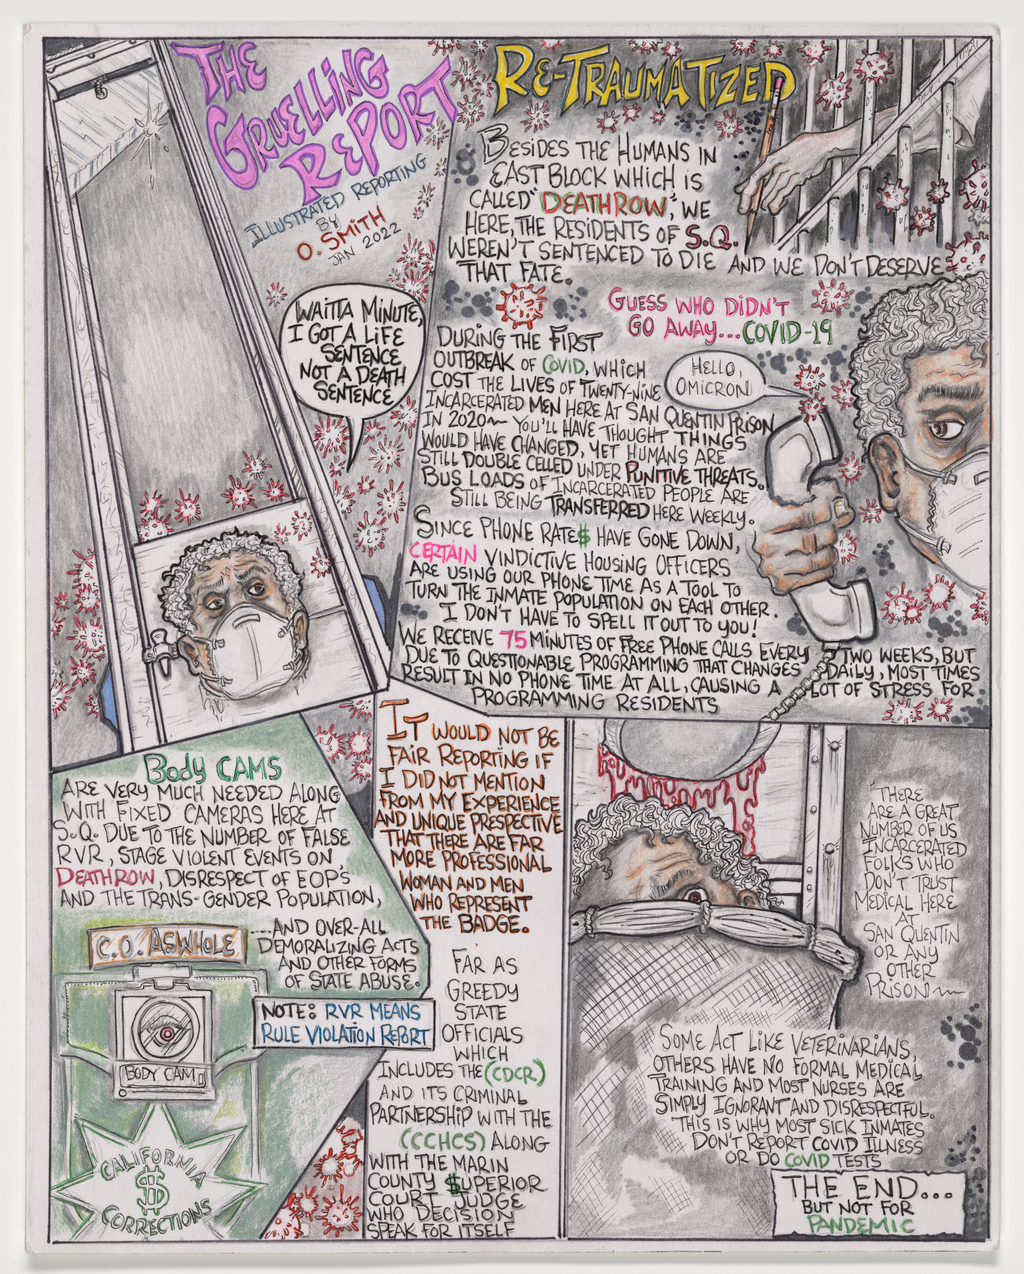 THE
GRUELLING
REPORT
ILLUSTRATED REPORTING
BY
O. SMITH
JAN 2022
WAITTA MINUTE,
I GOT A LIFE
SENTENCE
NOT A DEATH
SENTENCE
RE-TRAUMATIZED
BESIDES THE HUMANS IN
EAST BLOCK WHICH IS
CALLED "DEATHROW," WE
HERE, THE RESIDENTS OF S.Q.
WEREN'T SENTENCED TO DIE AND WE DON'T DESERVE
THAT FATE.
GUESS WHO DIDN'T
GO AWAY... COVID-19
DURING THE FIRST
OUTBREAK OF COVID, WHICH
COST THE LIVES OF TWENTY-NINE
INCARCERATED MEN HERE AT SAN QUENTIN PRISON
IN 2020~ YOU'LL HAVE THOUGHT THINGS
WOULD HAVE CHANGED, YET HUMANS ARE
STILL DOUBLE CELLED UNDER PUNITIVE THREATS.
BUS LOADS OF INCARCERATED PEOPLE ARE
STILL BEING TRANSFERRED HERE WEEKLY.
HELLO,
OMICRON
SINCE PHONE RATE$ HAVE GONE DOWN,
CERTAIN VINDICTIVE HOUSING OFFICERS
ARE USING OUR PHONE TIME AS A TOOL TO
TURN THE INMATE POPULATION ON EACH OTHER...
I DON'T HAVE TO SPELL IT OUT TO YOU!
WE RECEIVE 75 MINUTES OF FREE PHONE CALLS EVERY TWO WEEKS, BUT
DUE TO QUESTIONABLE PROGRAMMING THAT CHANGES DAILY, MOST TIMES
RESULT IN NO PHONE TIME AT ALL, CAUSING A LOT OF STRESS FOR
PROGRAMMING RESIDENTS
BODY CAMS
ARE VERY MUCH NEEDED ALONG
WITH FIXED CAMERAS HERE AT
S.Q. DUE TO THE NUMBER OF FALSE
RVR, STAGE VIOLENT EVENTS ON
DEATHROW, DISRESPECT OF EOP'S
AND THE TRANS-GENDER POPULATION,
...AND OVER-ALL
DEMORALIZING ACTS
AND OTHER FORMS
OF STATE ABUSE.
C.O. ASWHOLE
NOTE: RVR MEANS
RULE VIOLATION REPORT
BODY CAM
CALIFORNIA
$
CORRECTIONS
IT WOULD NOT BE
FAIR REPORTING IF
I DID NOT MENTION
FROM MY EXPERIENCE
AND UNIQUE PRESPECTIVE
THAT THERE ARE FAR
MORE PROFESSIONAL
WOMAN AND MEN
WHO REPRESENT
THE BADGE.
FAR AS
GREEDY
STATE
OFFICIALS
WHICH
INCLUDES THE (CDCR)
AND ITS CRIMINAL
PARTNERSHIP WITH THE
(CCHCS) ALONG
WITH THE MARIN
COUNTY $UPERIOR
COURT JUDGE
WHO DECISION
SPEAK FOR ITSELF
THERE
ARE A GREAT
NUMBER OF US
INCARCERATED
FOLKS WHO
DON'T TRUST
MEDICAL HERE
AT
SAN QUENTIN
OR ANY
OTHER
PRISON~
SOME ACT LIKE VETERINARIANS,
OTHERS HAVE NO FORMAL MEDICAL
TRAINING AND MOST NURSES ARE
SIMPLY IGNORANT AND DISRESPECTFUL.
THIS IS WHY MOST SICK INMATES
DON'T REPORT COVID ILLNESS
OR DO COVID TESTS
THE END...
BUT NOT FOR
PANDEMIC